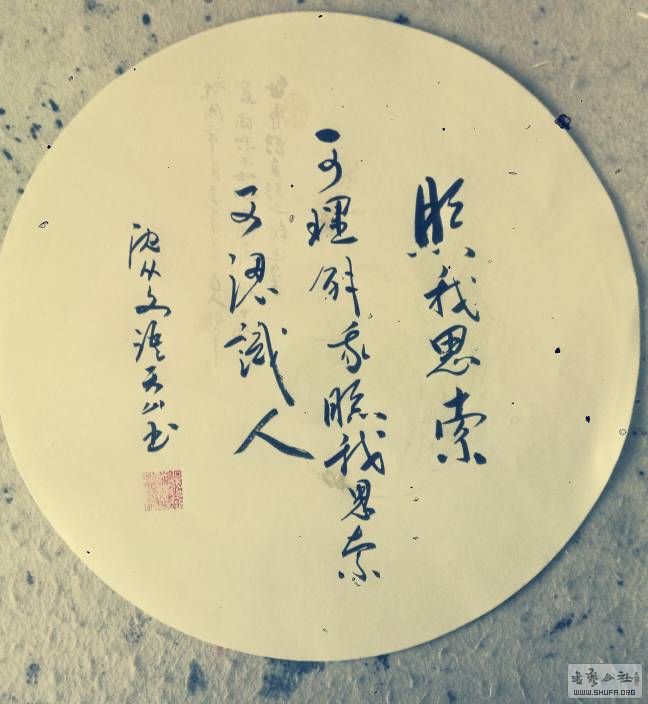 照我思索
可理解我照我思索
可認識人
沈从文语山书
书艺公社
WWW.SHUFA.ORG